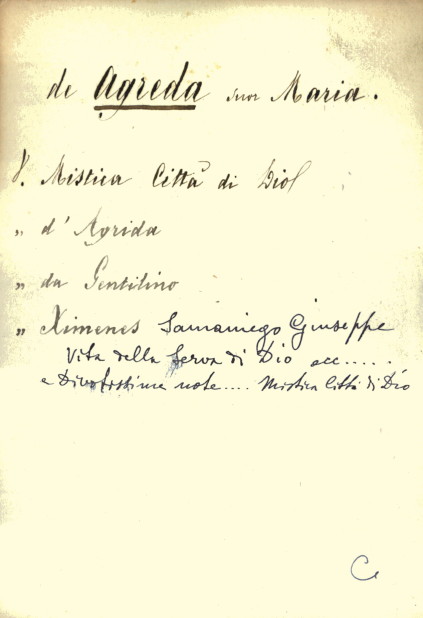 de Agreda suor Maria.
V. Mistica Città di Dio
„ d'Agrida
„ da Gentilino
„ Ximenes Samaniego Giuseppe
Vita della Serva di Dio ecc.....
e Divotissime note.... Mistica Città di Dio
C